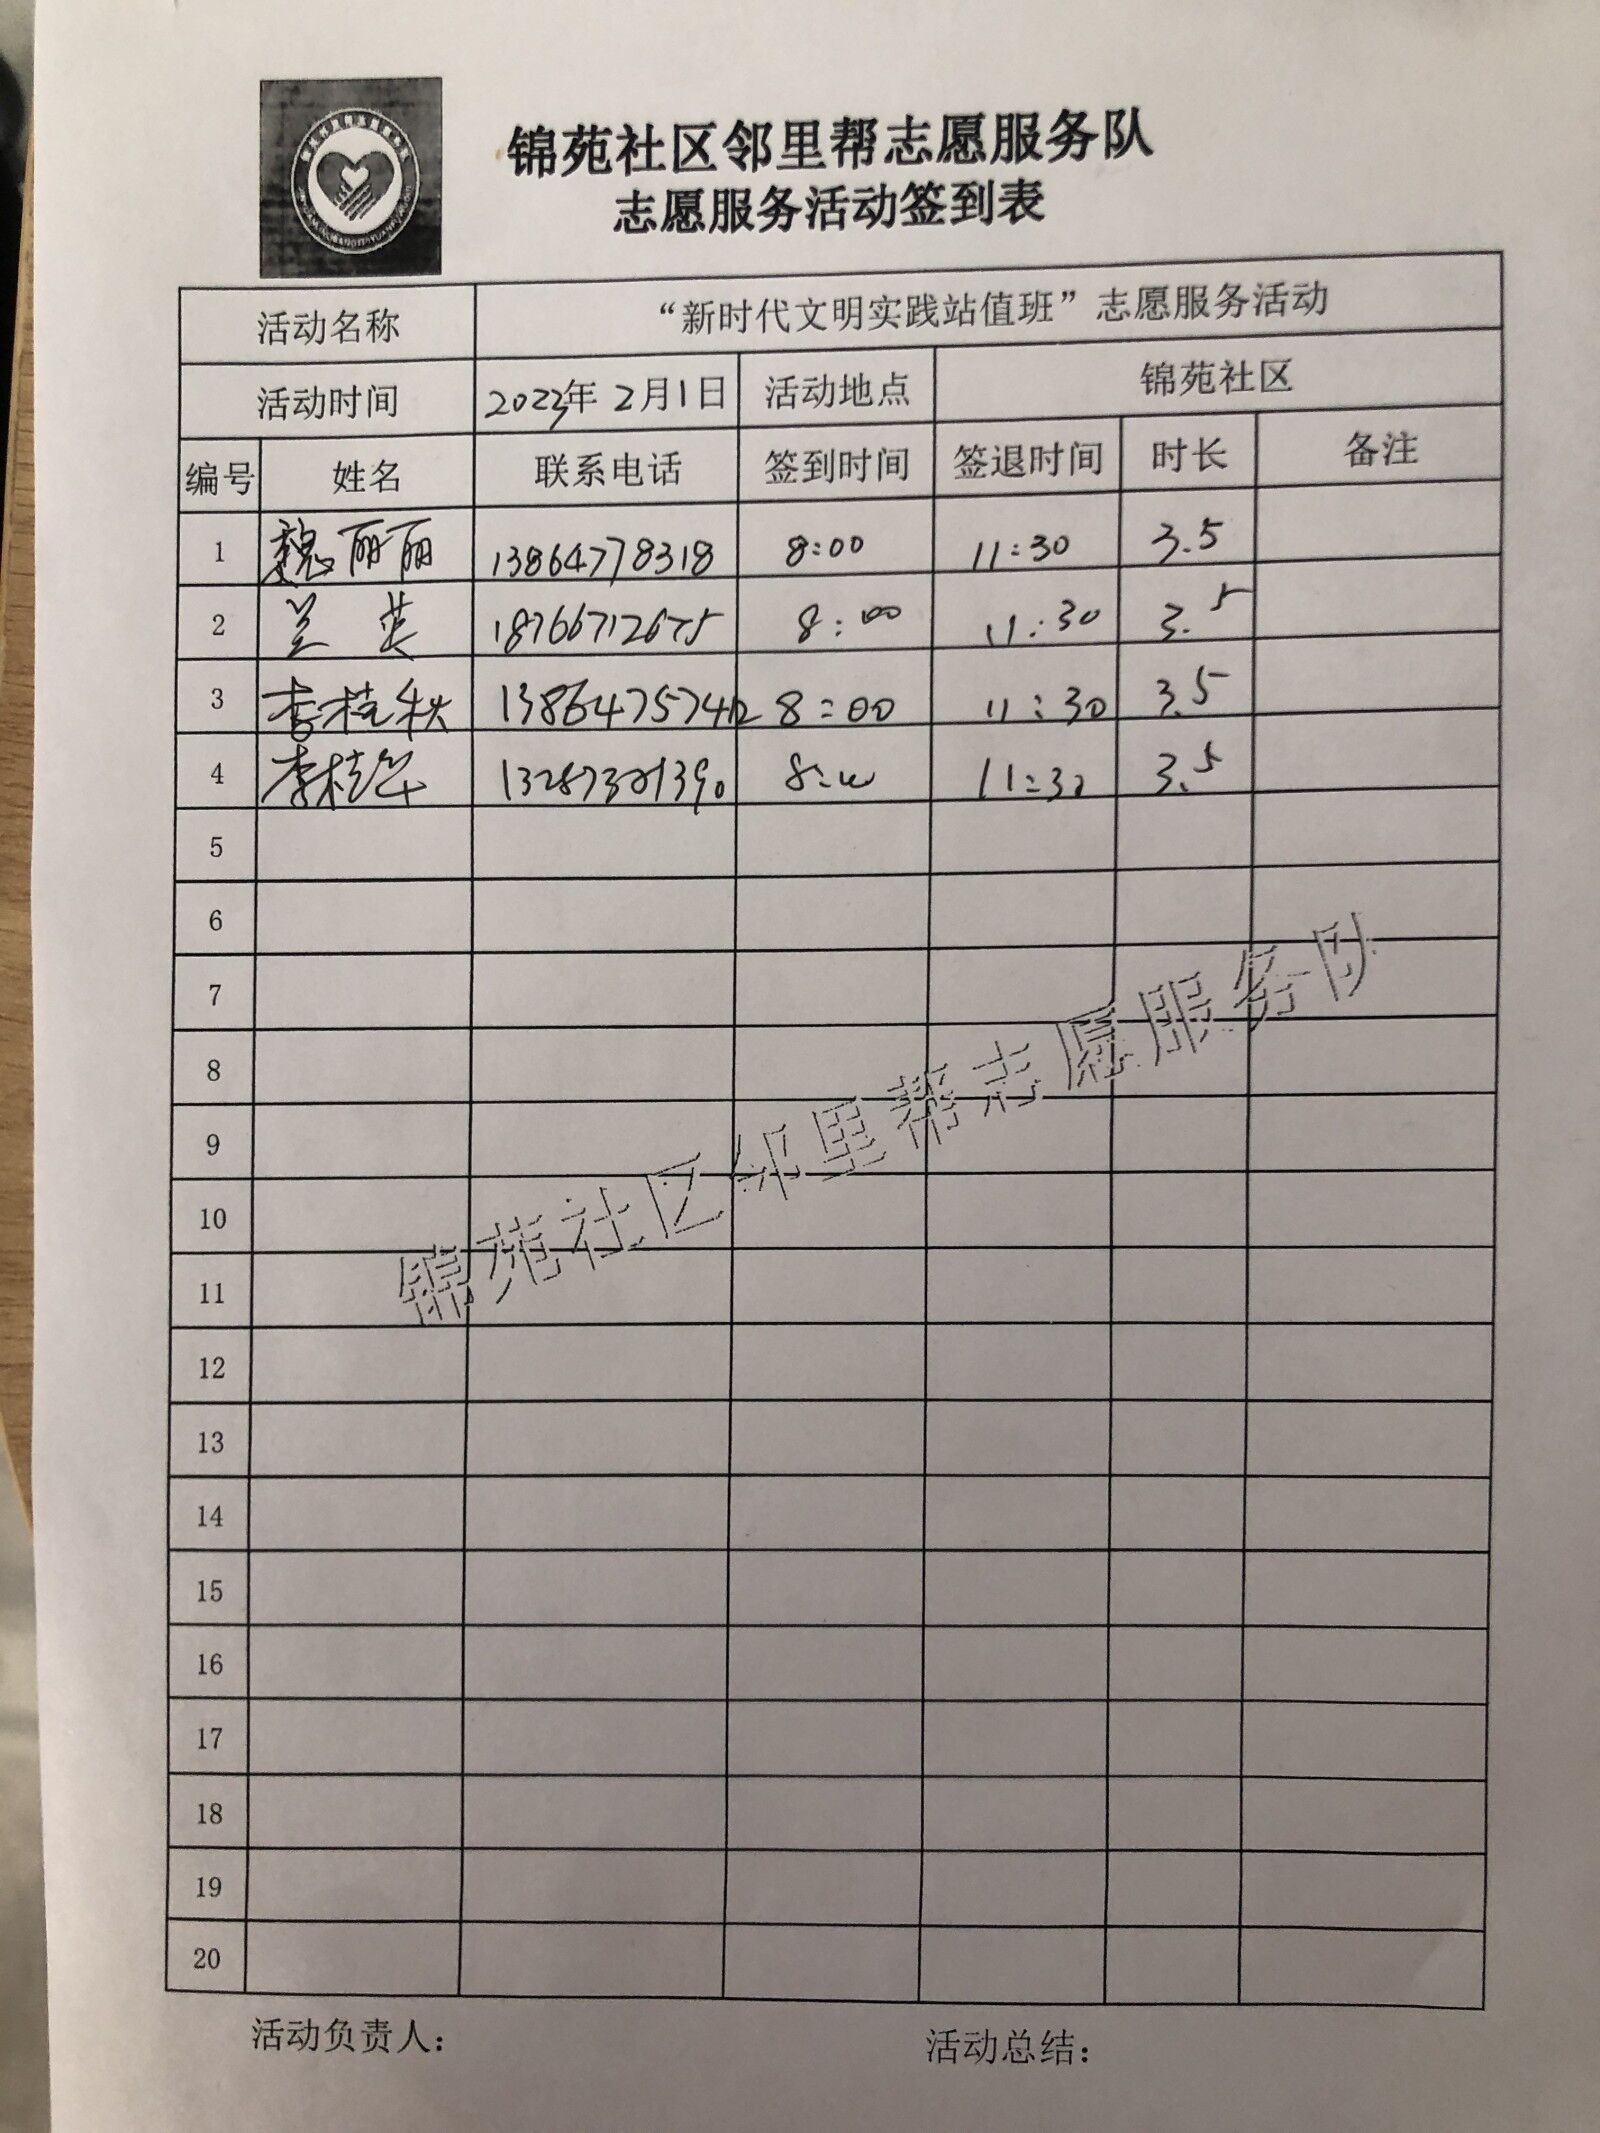 锦苑社区邻里帮志愿服务队
志愿服务活动签到表
活动名称 “新时代文明实践站值班”志愿服务活动
活动时间 2023年 2月1日 活动地点 锦苑社区
编号 姓名 联系电话 签到时间 签退时间 时长 备注
1 魏丽丽 13864778318 8:00 11:30 3.5
2 兰英 18766712675 8:00 11:30 3.5
3 李桂秋 13864757412 8:00 11:30 3.5
4 李桂华 8:00 11:30 3.5
5
6
7
8
9
10
11
12
13
14
15
16
17
18
19
20
锦苑社区邻里帮志愿服务队
活动负责人: 活动总结: